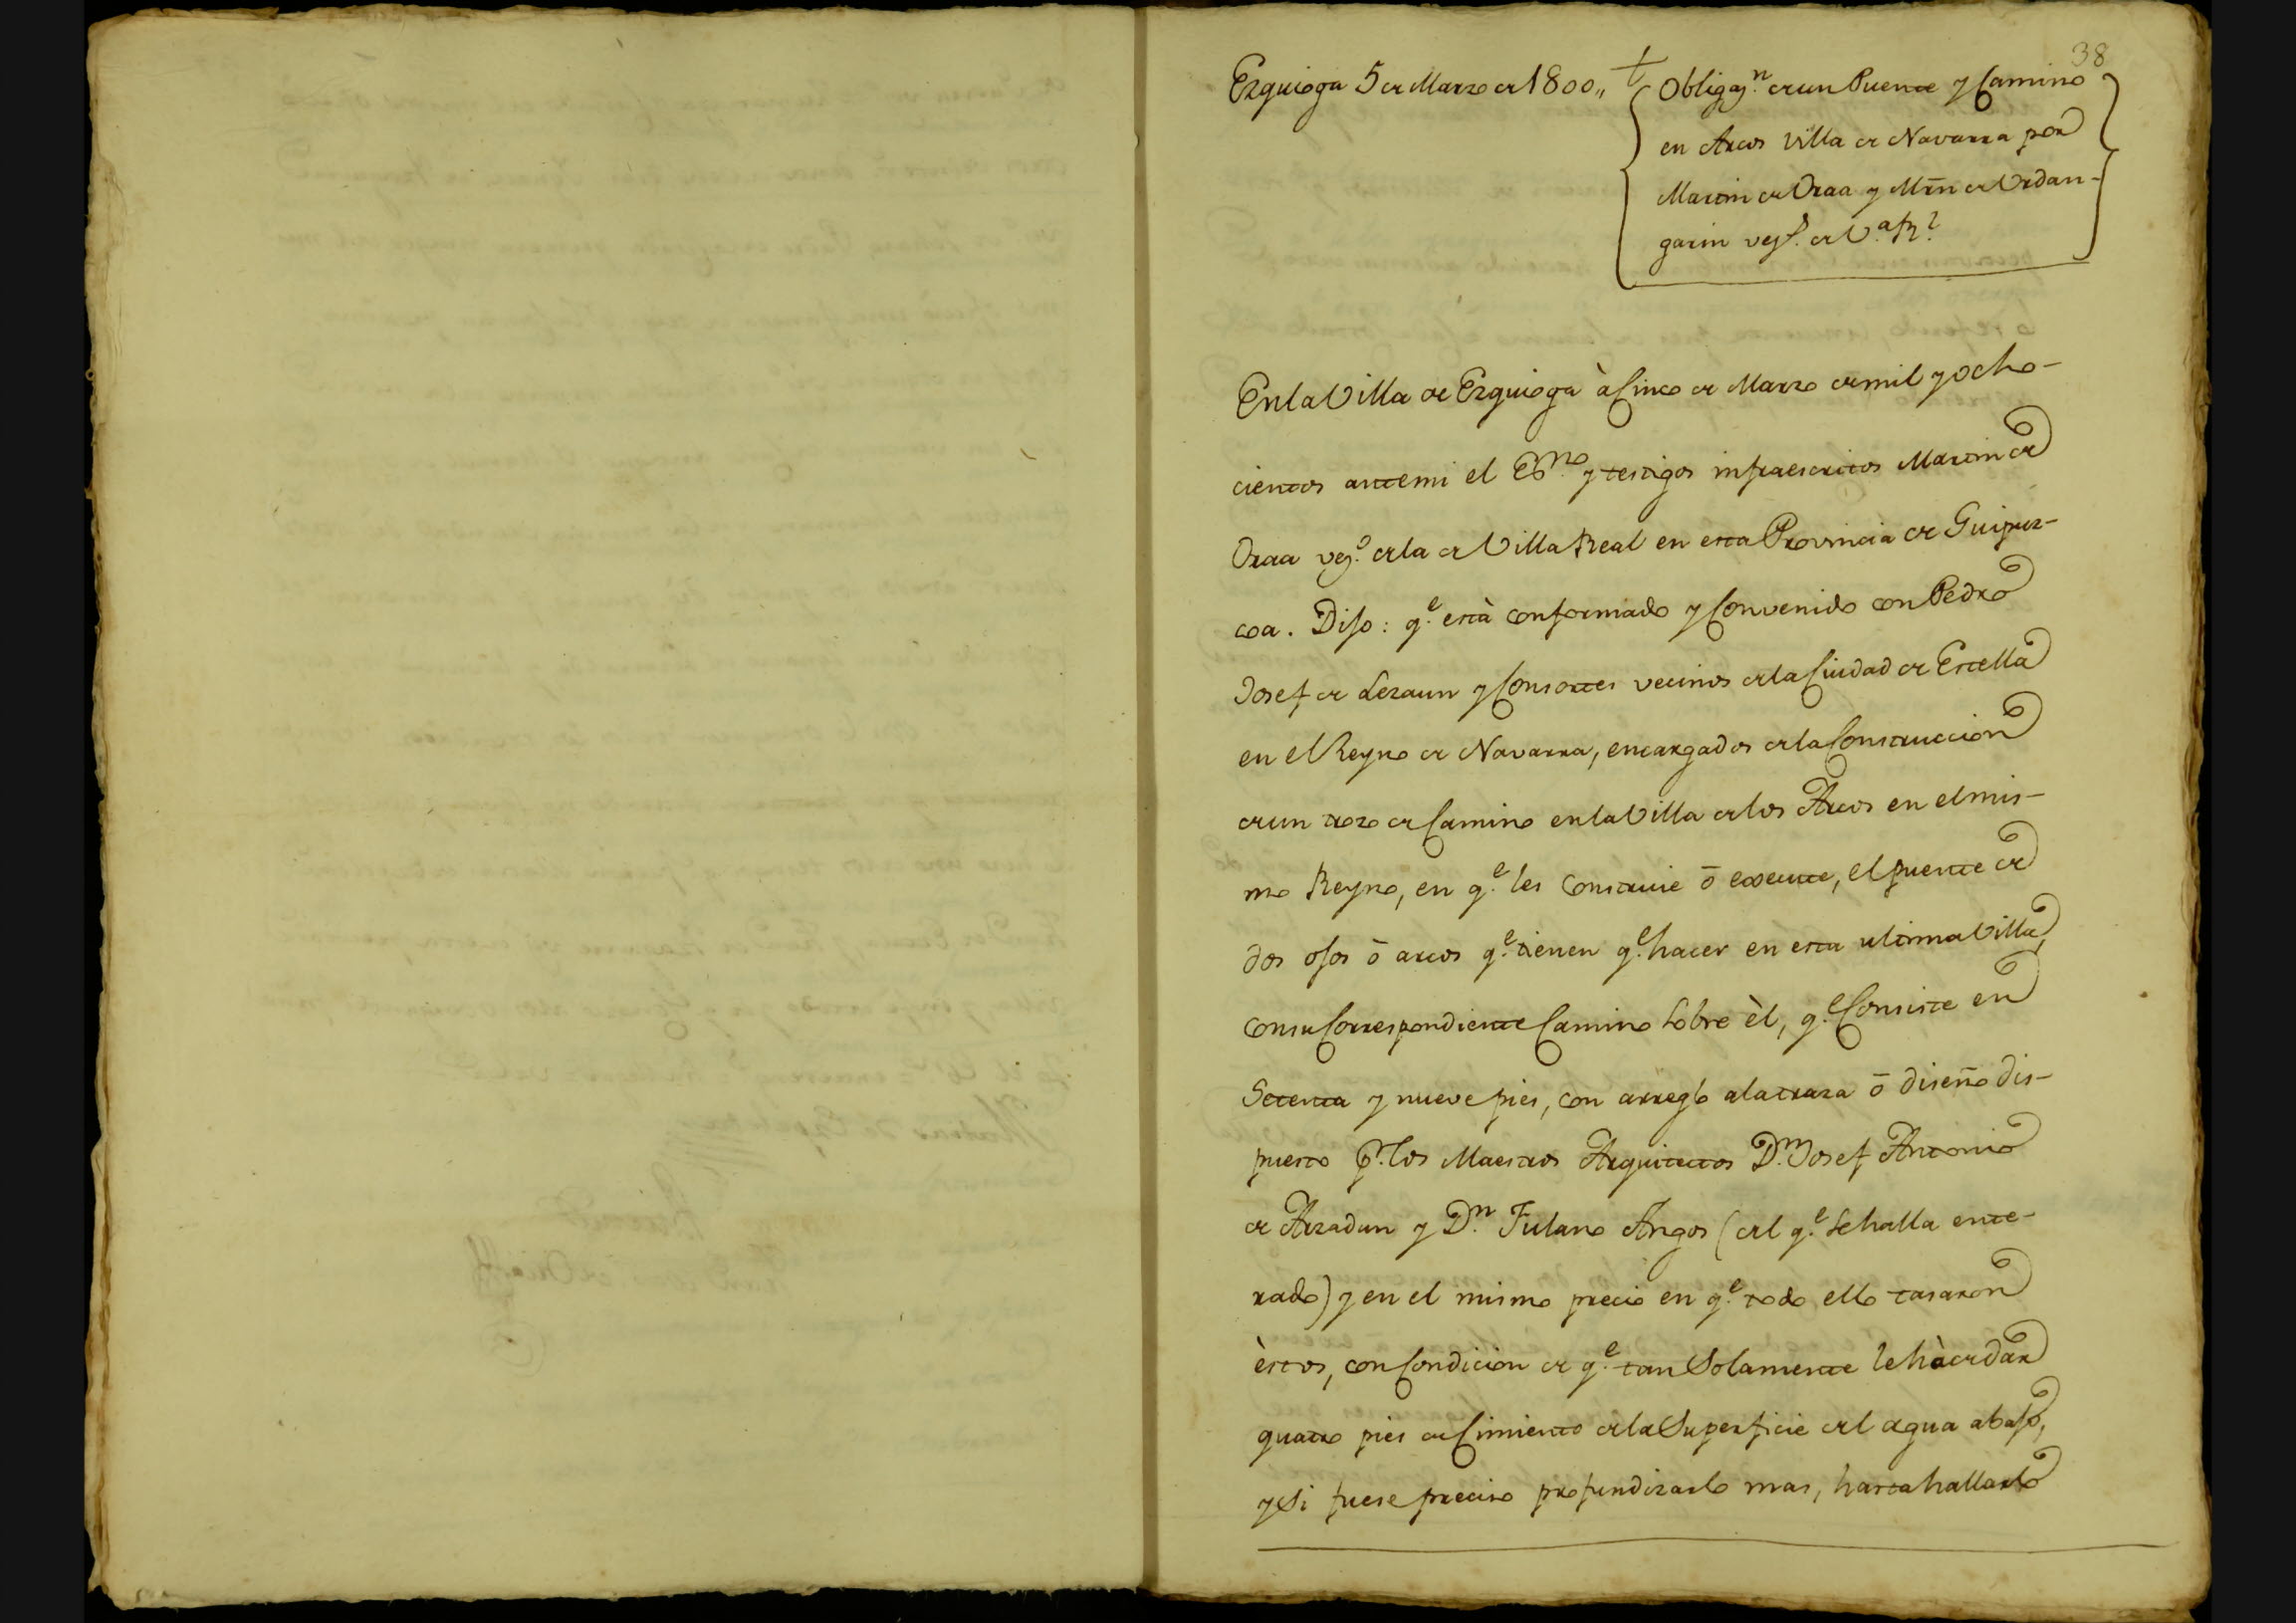 38
Ezquioga 5 de Marzo de 1800,,
Obligaz.n de un Puente y Camino
en Arcos Villa de Navarra por
Martin de Oraa y Mrn de Urdan-
garin vez.s de V.a R.l
En la Villa de Ezquioga à Cinco de Marzo de mil y ocho-
cientos ante mi el Es.no y testigos infraescritos Martin de
Oraa vez.o de la de Villa Real en esta Provincia de Guipuz-
coa. Dijo: q.e està conformado y Convenido con Pedro
Josef de Lezaun y Consortes vecinos de la Ciudad de Estella
en el Reyno de Navarra, encargados de la Construccion
de un trozo de Camino en la Villa de los Arcos en el mis-
mo Reyno, en q.e les construie ō execute, el puente de
dos ojos ō arcos q.e tienen q.e hacer en esta ultima Villa,
con su Correspondiente Camino sobre èl, q.e Consiste en
Setenta y nueve pies, con arreglo a la traza ō diseño dis-
puesto p.r los Maestros Arquitectos D.n Josef Antonio
de Arzadun y D.n Fulano Angos (del q.e se halla ente-
rado) y en el mismo precio en q.e todo ello tasaron
èstos, con Condicion de q.e tan Solamente le hà de dar
quatro pies de Cimiento de la Superficie del agua abajo,
y Si fuese preciso profundizarlo mas, hasta hallarlo